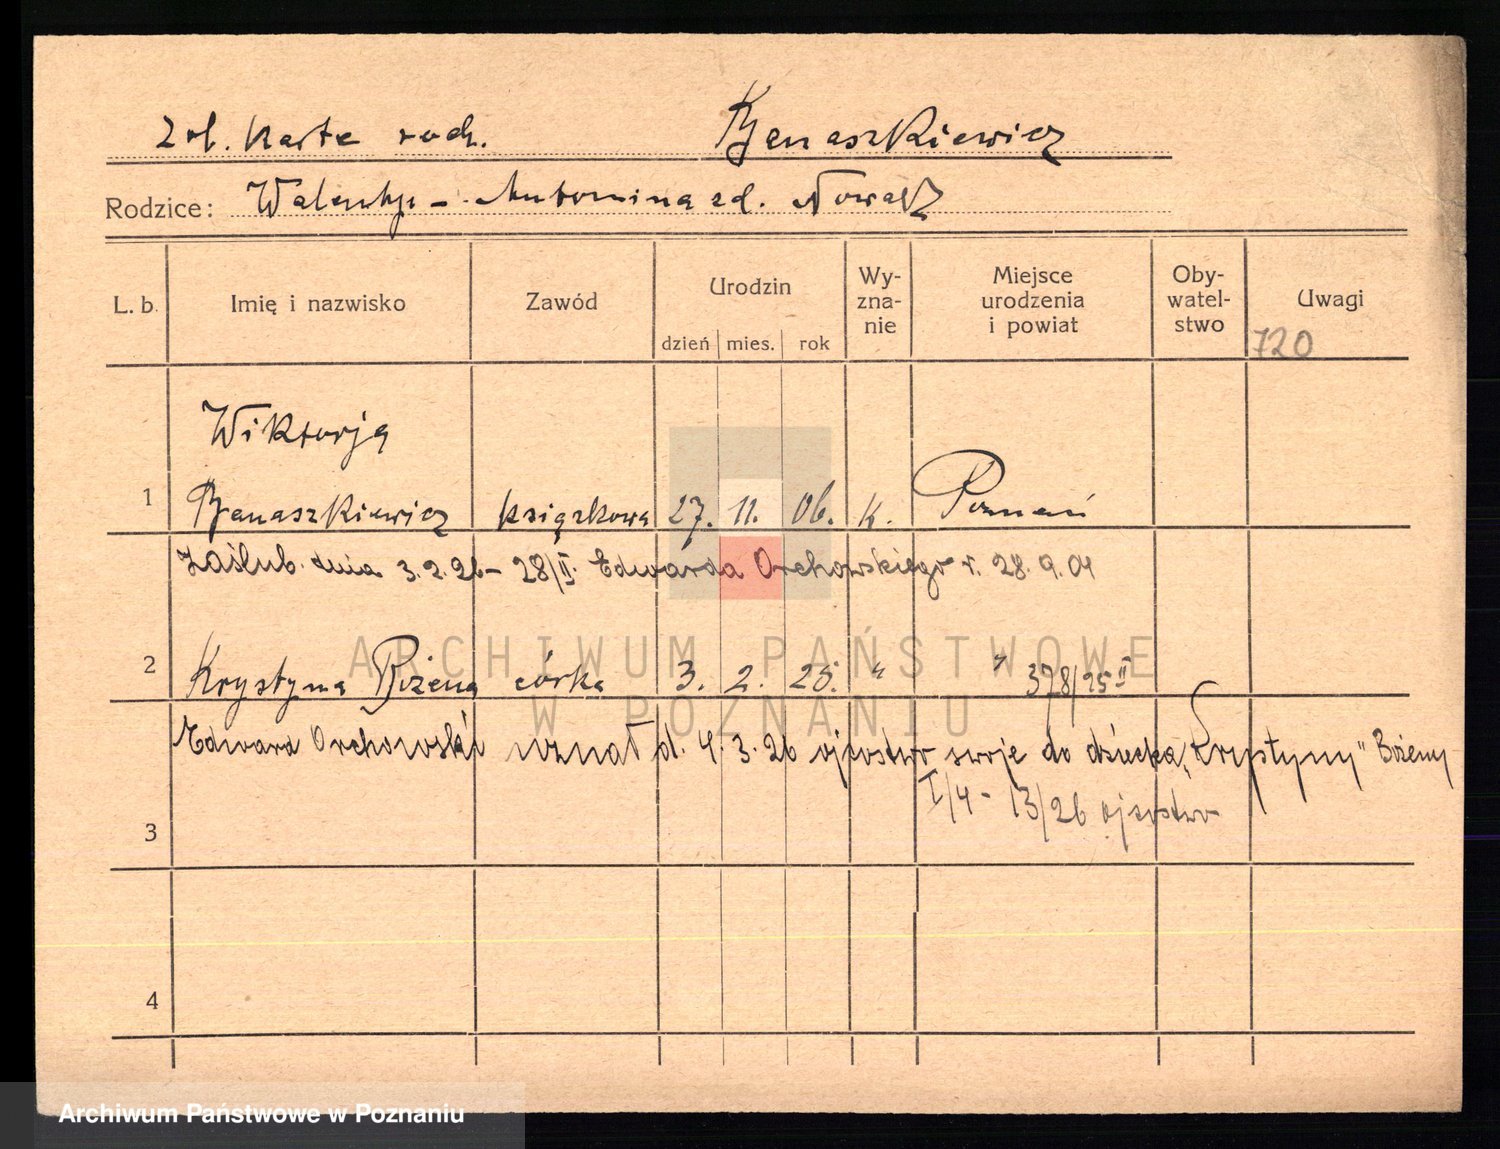 Karta rodz. Banaszkiewicz
Rodzice: Walenty - Antonina zd. Nowak
L. b. Imię i nazwisko Zawód Urodzin dzień mies. rok Wy-zna-nie Miejsce urodzenia i powiat Oby-watel-stwo Uwagi
720
Wiktorja
1 Banaszkiewicz książkowa 27. 11. 06. K. Poznań
Zaślub. dnia 3.2.26 - 28/II. Edwarda Orchowskiego r. 28.9.04
2 Krystyna Bożena córka 3. 2. 25. " " 378/25 II
Edward Orchowski uznał d. 4.3.26 ojcostwo swoje do dziecka „Krystyny" Bożeny
I/4 - 13/26 ojcostwo
3
4
ARCHIWUM PAŃSTWOWE
W POZNANIU
Archiwum Państwowe w Poznaniu